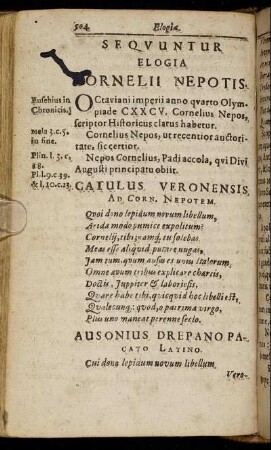 504 Elogia.
SEQVUNTUR
ELOGIA
CORNELII NEPOTIS.
Eusebius in
Chronicis.
Octaviani imperii anno quarto Olym-
piade CXXCV. Cornelius Nepos,
scriptor Historicus clarus habetur.
Mela 3. c. 5.
in fine.
Cornelius Nepos, ut recentior auctori-
tate, sic certior.
Plin. l. 3. c.
18.
Pl. l. 9. c. 39.
& l. 10. c. 23.
Nepos Cornelius, Padi accola, qui Divi
Augusti principatu obiit.
CATULUS VERONENSIS,
AD CORN. NEPOTEM.
Quoi dono lepidum novum libellum,
Arida modo pumice expolitum?
Cornelij, tibi: namq; tu solebas
Meas esse aliquid putare nugas,
Jam tum, quum ausus es unus Italorum,
Omne ævum tribus explicare chartis,
Doctis, Juppiter & laboriosis.
Quare habe tibi, quicquid hoc libelli est,
Qualecunq; quod, o patrima virgo,
Plus uno maneat perenne seclo.
AUSONIUS, DREPANO PA-
CATO LATINO.
Cui dono lepidum novum libellum,
Vero-